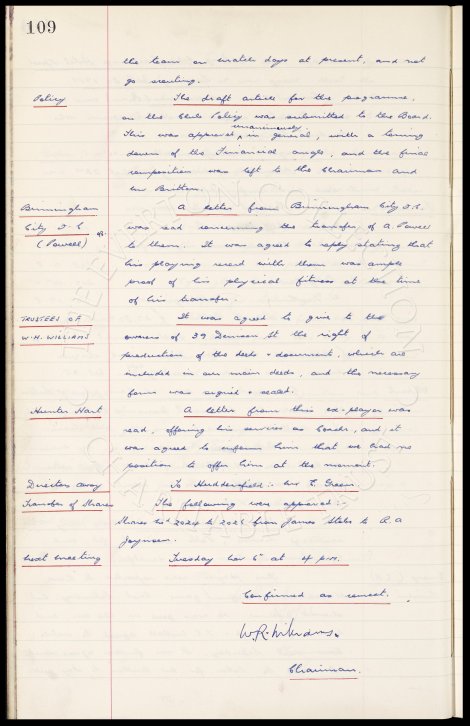 109
the team on match days at present, and not
go scouting.
Policy The draft article for the programme,
on the Clubs Policy was submitted to the Board.
unanimously
This was approved, in general, with a toning
down of the Financial angle, and the final
composition was left to the Chairman and
Mr Britten.
Birmingham A letter from Birmingham City F.C.
City F.C was read concerning the transfer of A. Powell
(Powell) to them. It was agreed to reply stating that
his playing record with them was ample
proof of his physical fitness at the time
of his transfer.
TRUSTEES OF It was agreed to give to the
W.H. WILLIAMS owners of 39 Denman St the right of
production of the deeds + document, which are
included in our main deeds, and the necessary
form was signed + sealed.
Hunter Hart A letter from this ex-player was
read, offering his services as Coach, and it
was agreed to inform him that we had no
position to offer him at the moment.
Directors away To Huddersfield:- Mr E. Green.
Transfer of Shares The following were approved:-
Shares No's 2024 to 2026 from James to R. A
Joynson.
Next meeting Tuesday Nov 6th at 4 p.m.
Confirmed as correct.
W.R. Williams.
Chairman.